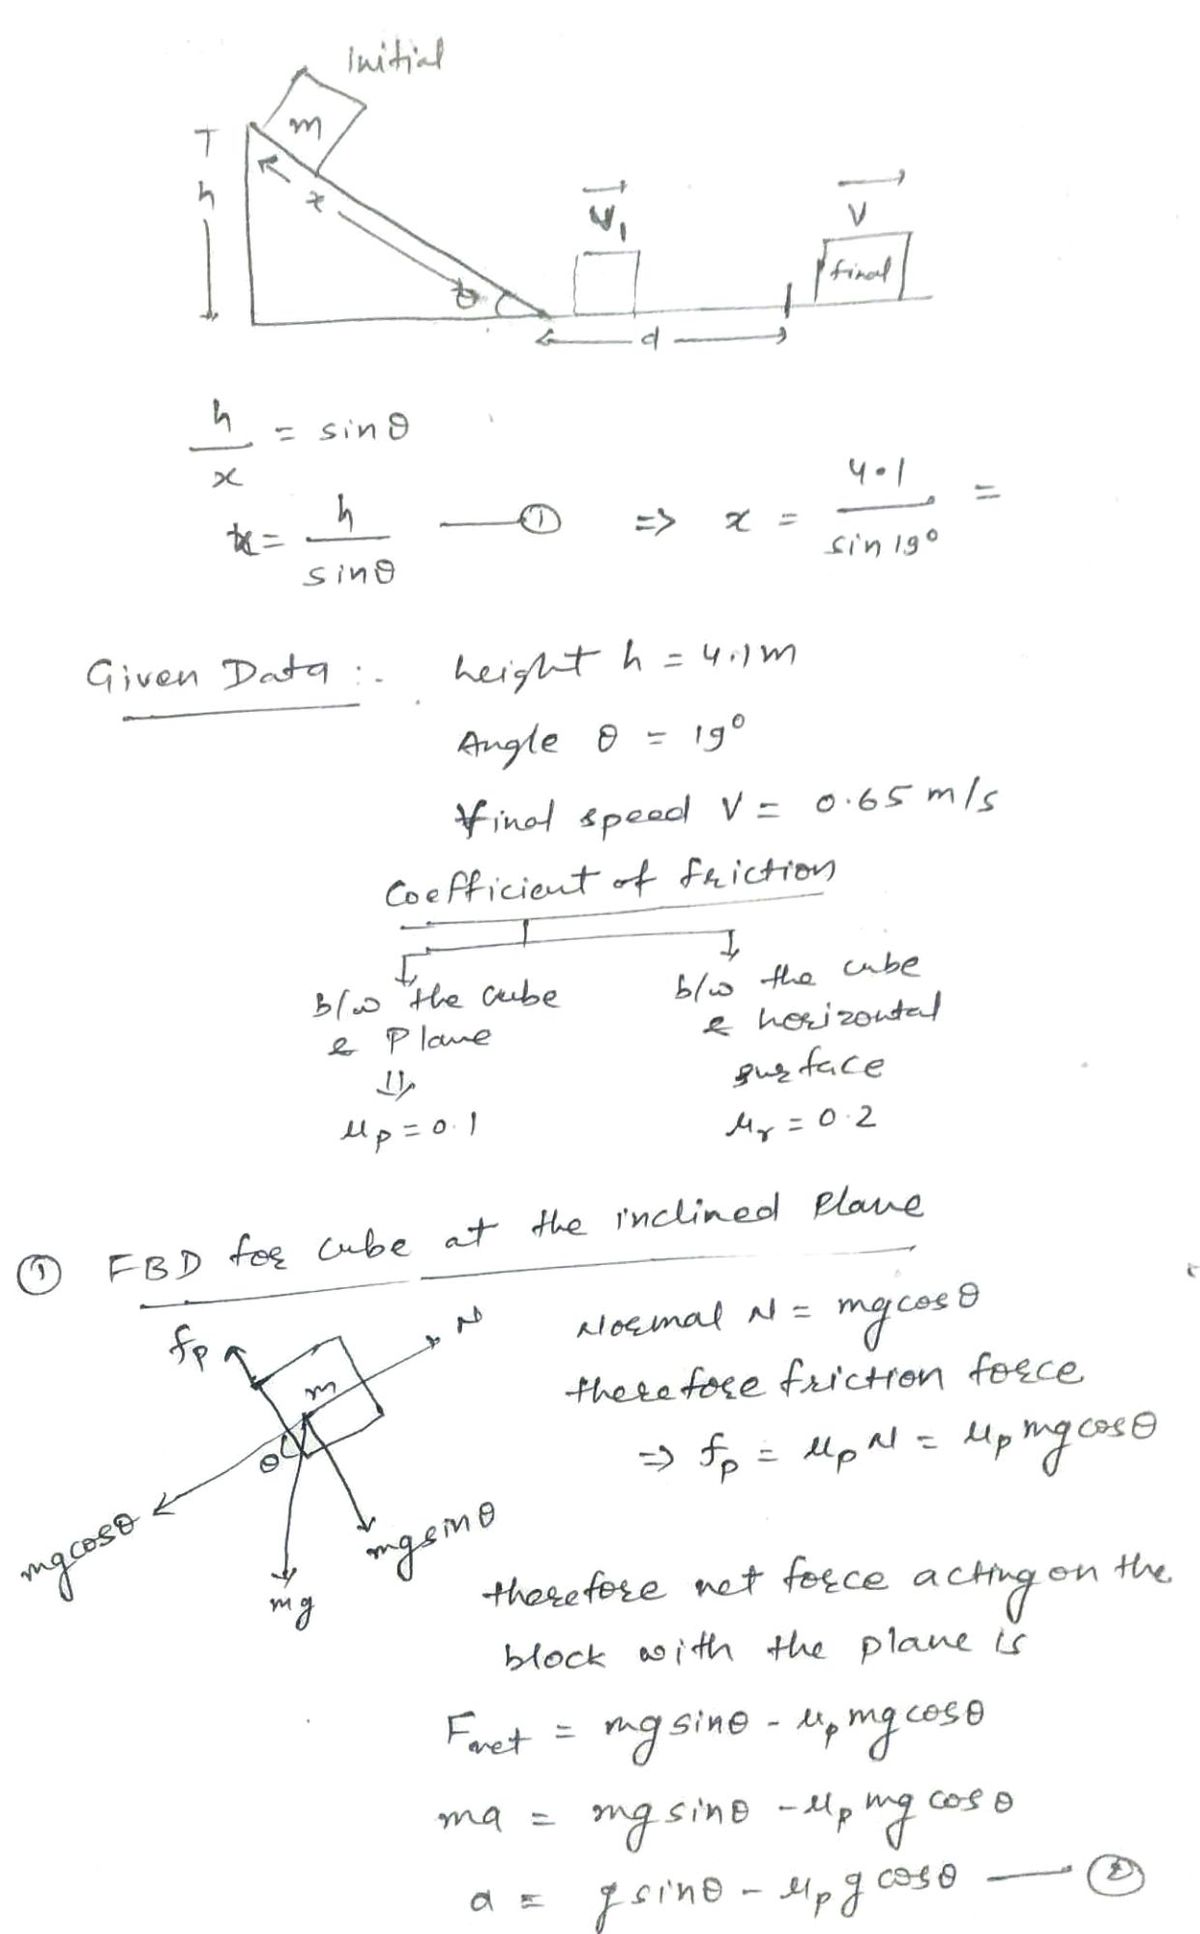 Initial
m
h
x
θ
V₁
V
final
d
h/x = sinθ
x = h/sinθ —① ⇒ x = 4.1/sin 19° =
Given Data :- height h = 4.1m
Angle θ = 19°
Final speed V = 0.65 m/s
Coefficient of friction
b/w the cube
& Plane
⇓
μp = 0.1
b/w the cube
& horizontal
surface
μr = 0.2
① FBD for cube at the inclined Plane
fp
N
m
θ
mgcosθ
mg
mgsinθ
Normal N = mgcosθ
therefore friction force
⇒ fp = μpN = μp mgcosθ
therefore net force acting on the
block with the plane is
Fnet = mgsinθ - μp mgcosθ
ma = mgsinθ - μp mg cosθ
a = gsinθ - μp g cosθ —②